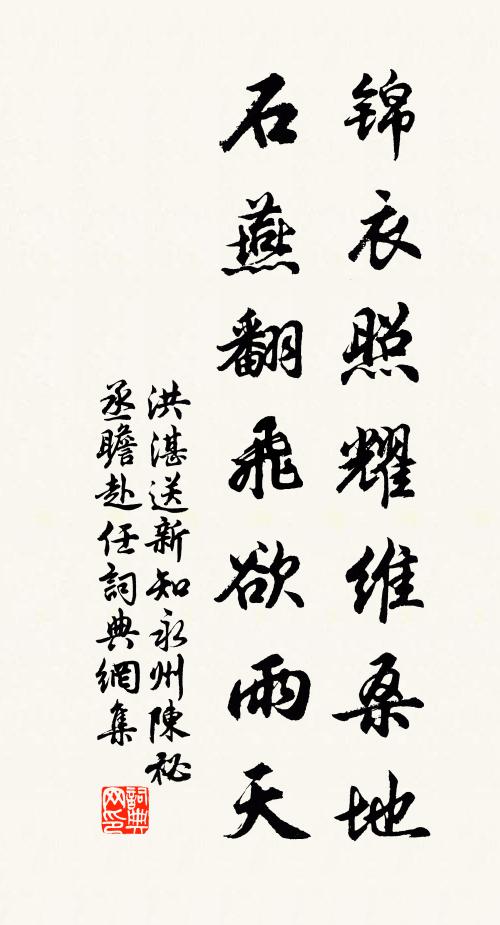 锦衣照耀维桑地
石燕翻飛欲雨天
洪湛送新知永州陳祕
丞瞻赴任詞典網集
詞典
网印